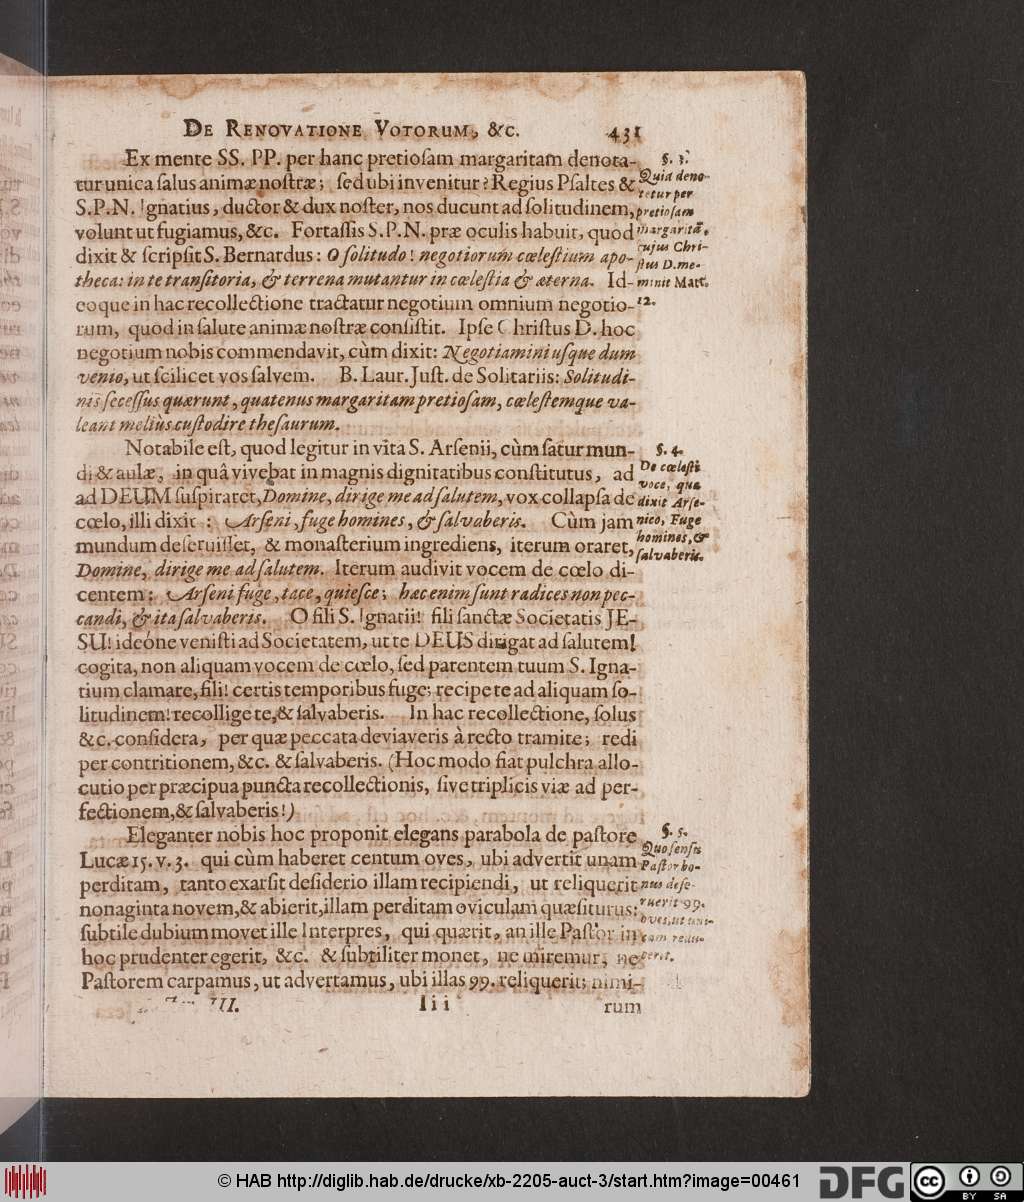 De Renovatione Votorum, &c. 431
Ex mente SS. PP. per hanc pretioſam margaritam denota-
tur unica ſalus animæ noſtræ; ſed ubi invenitur? Regius Pſaltes &
S.P.N. Ignatius, ductor & dux noſter, nos ducunt ad ſolitudinem,
volunt ut fugiamus, &c. Fortaſſis S.P.N. præ oculis habuit, quod
dixit & ſcripſit S. Bernardus: O ſolitudo! negotiorum cœleſtium apo-
theca: in te tranſitoria, & terrena mutantur in cœleſtia & æterna. Id-
eoque in hac recollectione tractatur negotium omnium negotio-
rum, quod in ſalute animæ noſtræ conſiſtit. Ipſe Chriſtus D. hoc
negotium nobis commendavit, cùm dixit: Negotiamini uſque dum
venio, ut ſcilicet vos ſalvem. B. Laur. Juſt. de Solitariis: Solitudi-
nis ſeceſſus quærunt, quatenus margaritam pretioſam, cœleſtemque va-
leant meliùs cuſtodire theſaurum.
§. 3.
Quia deno-
tetur per
pretioſam
margaritã,
cujus Chri-
ſtus D. me-
minit Matt.
12.
Notabile eſt, quod legitur in vita S. Arſenii, cùm ſatur mun-
di & aulæ, in quâ vivebat in magnis dignitatibus conſtitutus, ad
ad DEUM ſuſpiraret, Domine, dirige me ad ſalutem, vox collapſa de
cœlo, illi dixit: Arſeni, fuge homines, & ſalvaberis. Cùm jam
mundum deſeruiſſet, & monaſterium ingrediens, iterum oraret,
Domine, dirige me ad ſalutem. Iterum audivit vocem de cœlo di-
centem: Arſeni fuge, tace, quieſce; hæc enim ſunt radices non pec-
candi, & ita ſalvaberis. O fili S. Ignatii! fili ſanctæ Societatis JE-
SU! ideóne veniſti ad Societatem, ut te DEUS dirigat ad ſalutem!
cogita, non aliquam vocem de cœlo, ſed parentem tuum S. Igna-
tium clamare, fili! certis temporibus fuge; recipe te ad aliquam ſo-
litudinem! recollige te, & ſalvaberis. In hac recollectione, ſolus
&c. conſidera, per quæ peccata deviaveris à recto tramite; redi
per contritionem, &c. & ſalvaberis. (Hoc modo fiat pulchra allo-
cutio per præcipua puncta recollectionis, ſive triplicis viæ ad per-
fectionem, & ſalvaberis!)
§. 4.
De cœleſti
voce, quæ
dixit Arſe-
nico, Fuge
homines, &
ſalvaberis.
Eleganter nobis hoc proponit elegans parabola de paſtore
Lucæ 15. v. 3. qui cùm haberet centum oves, ubi advertit unam
perditam, tanto exarſit deſiderio illam recipiendi, ut reliquerit
nonaginta novem, & abierit, illam perditam oviculam quæſiturus:
ſubtile dubium movet ille Interpres, qui quærit, an ille Paſtor in
hoc prudenter egerit, &c. & ſubtiliter monet, ne miremur, ne
Paſtorem carpamus, ut advertamus, ubi illas 99. reliquerit; nimi-
§. 5.
Quo ſenſu
Paſtor bo-
nus deſe-
ruerit 99.
oves, ut uni-
cam redu-
cerit.
III. Iii rum
© HAB http://diglib.hab.de/drucke/xb-2205-auct-3/start.htm?image=00461
DFG
cc BY SA